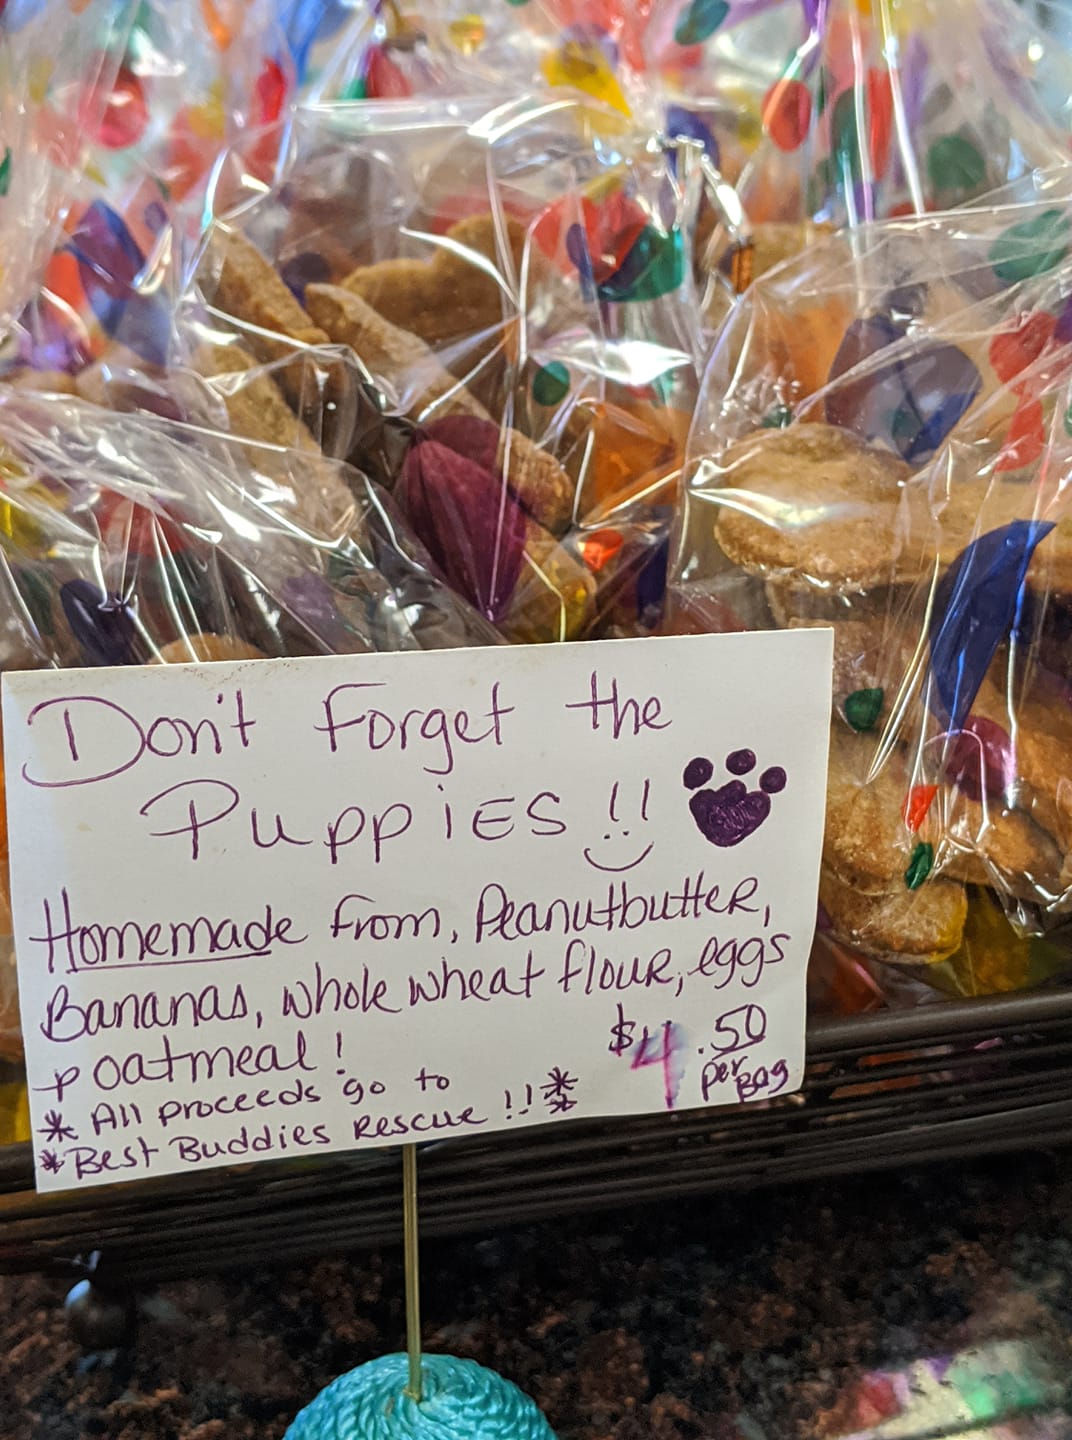 Don't Forget the
Puppies!!
Homemade from, Peanutbutter,
Bananas, whole wheat flour, eggs
+ oatmeal!
$4.50
per Bag
* All proceeds go to
*Best Buddies Rescue!!**